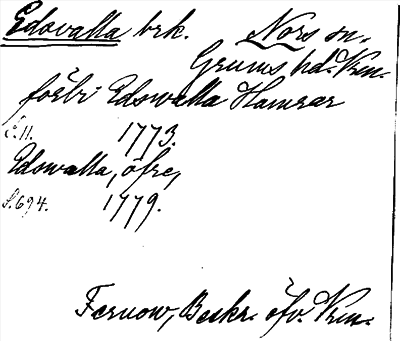 Edsvalla brk. Nors sn.
Grums hd. Vrm.
förbi Edswalla Hamrar
S. 11. 1773.
Edswalla, öfre,
S. 694. 1779.
Fernow, Beskr. öfv. Vrm.